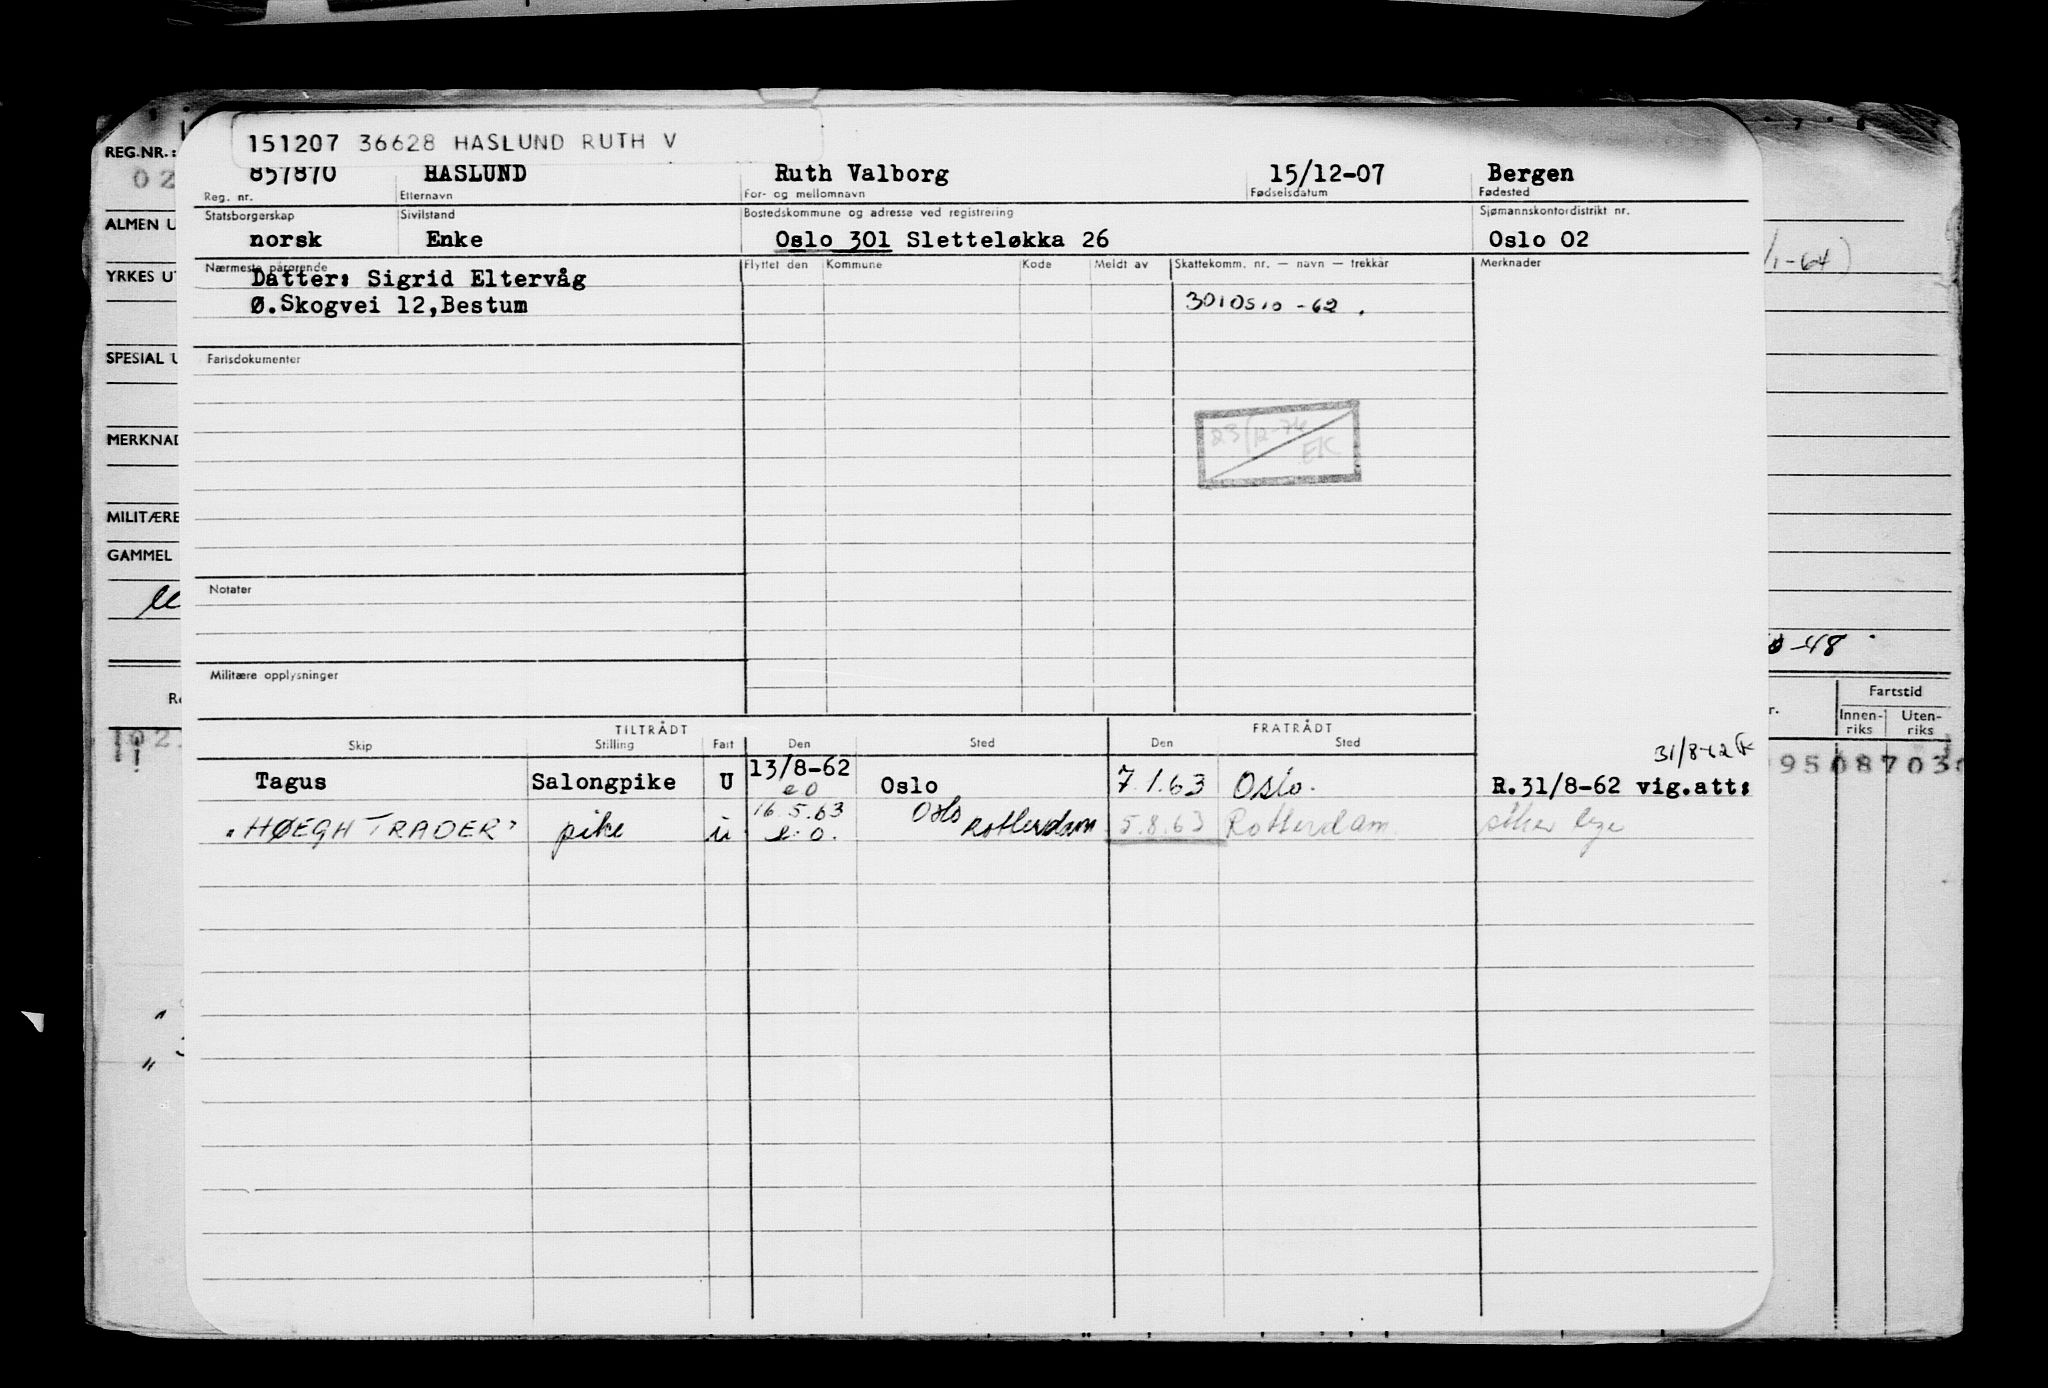 151207 36628 HASLUND RUTH V
REG.NR.:
857870 HASLUND Ruth Valborg 15/12-07 Bergen
Reg. nr. Etternavn For- og mellomnavn Fødselsdatum Fødested
Statsborgerskap Sivilstand Bostedskommune og adresse ved registrering Sjømannskontordistrikt nr.
norsk Enke Oslo 301 Sletteløkka 26 Oslo 02
Nærmeste pårørende Flyttet den Kommune Kode Meldt av Skattekomm. nr. — navn — trekkår Merknader
Datter: Sigrid Eltervåg
Ø.Skogvei 12,Bestum 301 Oslo -62.
Fartsdokumenter
23/12-76
EK
Notater
Militære opplysninger
TILTRÅDT FRATRÅDT
Skip Stilling Fart Den Sted Den Sted
31/8-62
Tagus Salongpike U 13/8-62 Oslo 7.1.63 Oslo. R.31/8-62 vig.att:
eo
"HØEGH TRADER" pike u 16.5.63 Oslo Rotterdam 5.8.63 Rotterdam
e.o.
02
ALMEN U
YRKES UT
SPESIAL U
MERKNAD
MILITÆRE
GAMMEL
/1-64)
-48
Fartstid
r. Innen-riks Uten-riks
102
95087030